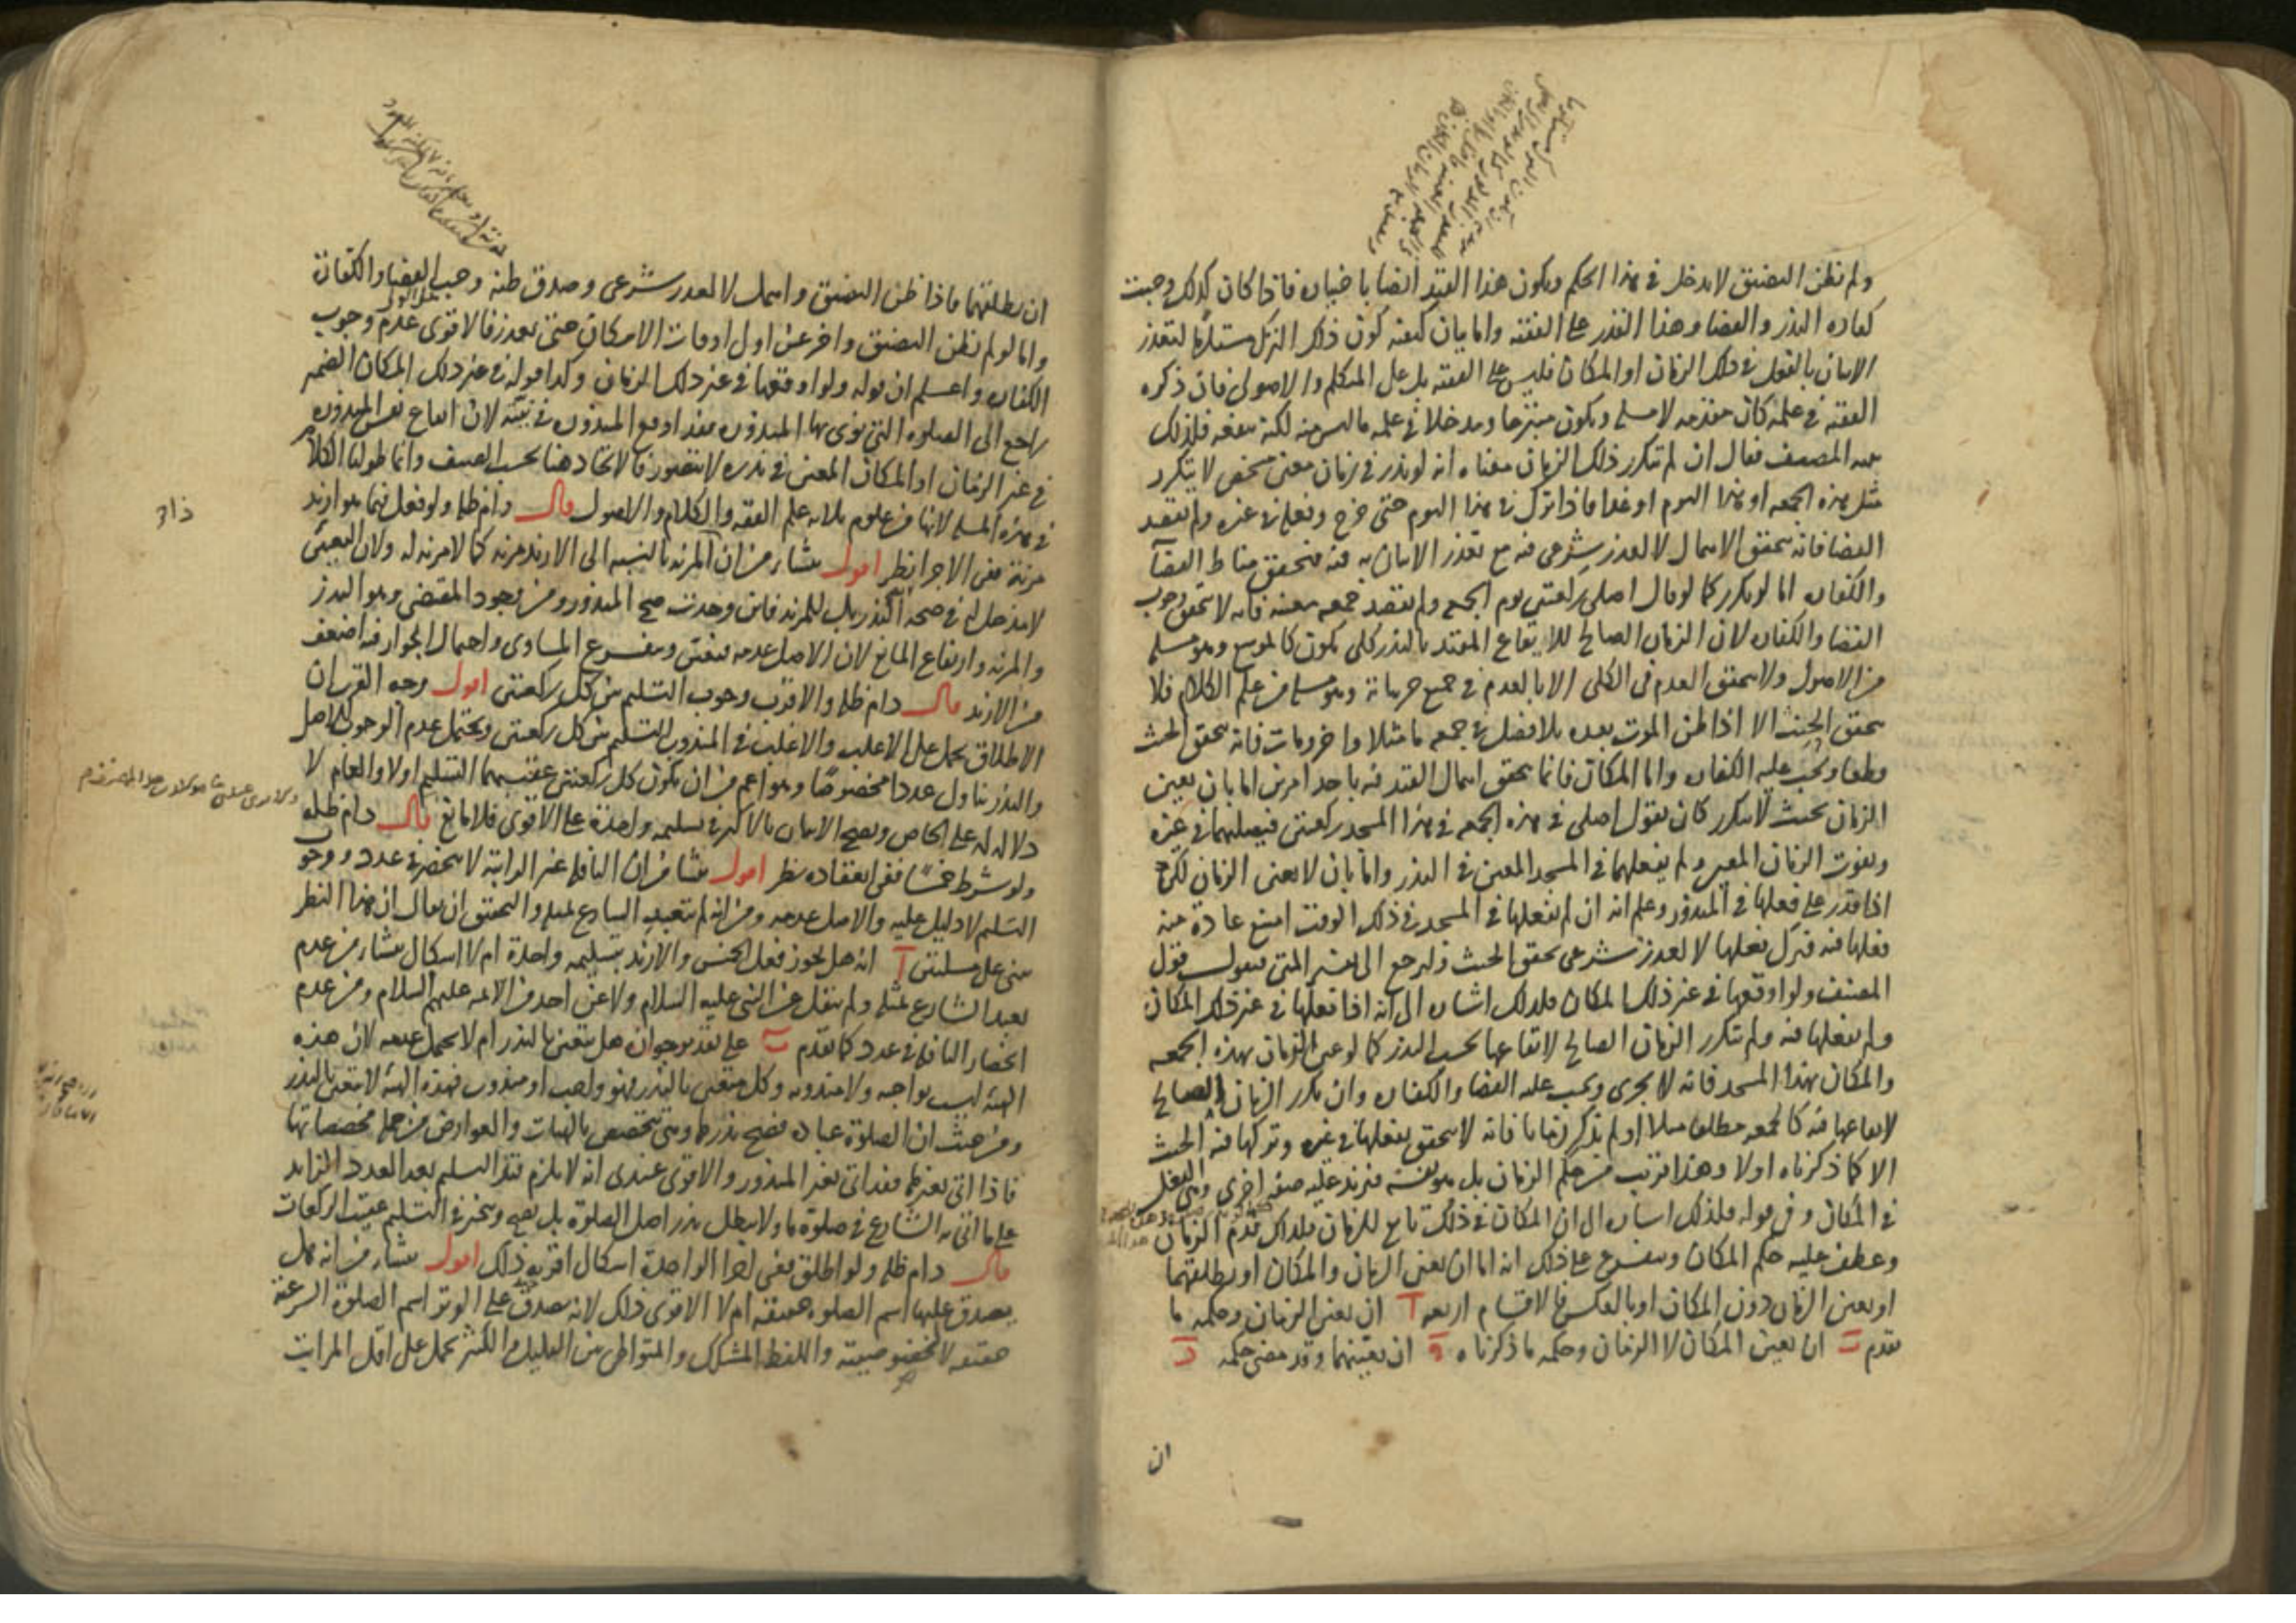 ولم يظن التضيق لا يدخل في هذا الحكم ويكون هذا القيد أيضا باختياره فاذا كان كذلك وجبت
كفاره النذر والقضا وهذا القدر على الفقيه واما بيان كيفيه كون ذلك الترك مستلزما لتعذر
الاتيان بالفعل في ذلك الزمان او المكان فليس على الفقيه بل على المتكلم والاصولي فان ذكره
الفقيه في علمه كان مقدمه لا مسله ويكون متبرعا ومدخلا في علمه ما ليس منه لكنه ينفعه فلذلك
المصنف فقال ان لم يتكرر ذلك الزمان معناه انه لو نذر في زمان معين شخصي لا يتكرر
مثل هذه الجمعه او هذا اليوم او غدا فاذا ترك في هذا اليوم حتى خرج وفعله في غيره ولم يقصد
القضا فانه يتحقق الاهمال لا لعذر شرعي فيه مع تعذر الاتيان به فيه فيتحقق مناط القضا
والكفاره اما لو تكرر كما لو قال اصلي ركعتين يوم الجمعه ولم يقصد جمعه معينه فانه لا يتحقق وجوب
القضا والكفاره لان الزمان الصالح للايقاع المقيد بالنذر كلي يكون كالموسع وهو مسله
من الاصول ولا يتحقق العدم في الكلي الا بالعدم في جميع جزياته وهو مسله من علم الكلام فلا
يتحقق الحنث الا اذا ظن الموت بعده بلا فصل في جمعه ما مثلا واخر ومات فانه يتحقق الحنث
قطعا ويجب عليه الكفاره واما المكان فانما يتحقق اهمال القيد فيه باحد امرين اما بان يعين
الزمان بحيث لا يتكرر كان يقول اصلي في هذه الجمعه في هذا المسجد ركعتين فيصليهما في غيره
ويفوت الزمان المعين ولم يفعلهما في المسجد المعين في النذر واما بان لا يعين الزمان لكن
اذا قدر على فعلها في المنذور وعلم انه ان لم يفعلها في المسجد في ذلك الوقت امتنع عادة منه
فعلها فيه فترك فعلها لا لعذر شرعي تحقق الحنث ولنرجع الى تفسير المتن فنقول قول
المصنف ولو اوقعها في غير ذلك المكان فلذلك اشاره الى انه اذا فعلها في غير ذلك المكان
ولم يفعلها فيه ولم يتكرر الزمان الصالح لايقاعها بحسب النذر كما لو عين الزمان بهذه الجمعه
والمكان بهذا المسجد فانه لا يجزي ويجب عليه القضا والكفاره وان تكرر الزمان الصالح
لايقاعها فيه كالجمعه مطلقا مثلا او لم يذكر زمانا فانه لا يتحقق بفعلها في غيره وتركها فيه الحنث
الا كما ذكرناه اولا وهذا قريب من حكم الزمان بل هو نفسه فيزيد عليه صفه اخرى وهي الفعل
في المكان وفي قوله فلذلك اشاره الى ان المكان في ذلك تابع للزمان فلذلك قدم الزمان
وعطف عليه حكم المكان ويتفرع على ذلك انه اما ان يعين الزمان والمكان او يطلقهما
او يعين الزمان دون المكان او بالعكس فالاقسام اربعه آ ان يعين الزمان وحكمه ما
تقدم ب ان يعين المكان لا الزمان وحكمه ما ذكرناه ج ان يعينهما وقد مضى حكمه د
ان
ان يطلقهما فاذا ظن التضيق واهمل لا لعذر شرعي وصدق ظنه وجب القضا والكفارة
واما لو لم يظن التضيق واخر عن اول اوقات الامكان حتى تعذر فالاقوى عدم وجوب
الكفاره واعلم ان قوله ولو اوقعها في غير ذلك الزمان وكذا قوله في غير ذلك المكان الضمير
راجع الى الصلوه التي نوى بها المنذوره فقد اوقع المنذوره في نيته لان ايقاع نفس المنذوره
في غير الزمان او المكان المعين في نذره لا يتصور فالاتحاد هنا بحسب الصنف وانما طولنا الكلام
في هذه المسله لانها من علوم ثلاثه علم الفقه والكلام والاصول قال دام ظله ولو فعل فيما هو ازيد
مزية ففي الاجزا نظر اقول ينشا من ان المزيه بالنسبه الى الازيد مزية كلا مزية له ولان التعيين
لا مدخل له في صحه النذر بل للمزيه فان وجدت صح المنذور ومن وجود المقتضي وهو النذر
والمزيه وارتفاع المانع لان الاصل عدمه فيتعين ويتفرع المساوي واحتمال الجواز فيه اضعف
من الازيد قال دام ظله والاقرب وجوب التسليم بين كل ركعتين اقول وجه القرب ان
الاطلاق يحمل على الاغلب والاغلب في المندوب التسليم بين كل ركعتين ويحتمل عدم الوجوب للاصل
والنذر يتناول عددا مخصوصا وهو اعم من ان يكون كل ركعتين عقيبهما التسليم اولا والعام لا
دلاله له على الخاص ويصح الاتيان بالاكثر في تسليمه واحدة على الاقوى فلا مانع قال دام ظله
ولو شرط خمسا ففي انعقاده نظر اقول ينشا من ان النافله غير الراتبة لا تنحصر في عدد ووجوب
التسليم لا دليل عليه والاصل عدمه ومن انه لم يتعبد الشارع بمثله والتحقيق ان يقال ان هذا النظر
مبني على مسلتين آ انه هل يجوز فعل الخمس والازيد بتسليمه واحدة ام لا اشكال ينشا من عدم
تعبد الشارع بمثله ولم ينقل عن النبي عليه السلام ولا عن احد من الائمه عليهم السلام ومن عدم
انحصار النافله في عدد كما تقدم ب على تقدير جوازه هل يتعين بالنذر ام لا يحتمل عدمه لان هذه
الهيئه ليست بواجبه ولا مندوبه وكل متعين بالنذر فهو واجب او مندوب فهذه الهيئه لا تتعين بالنذر
ومن حيث ان الصلوة عباده فصح نذرها وهي تتخصص بالهيات والعوارض من جمله مخصصاتها
فاذا اتى بغيرها فقد اتى بغير المنذور والاقوى عندي انه لا يلزم قيد التسليم بعد العدد الزايد
على ما اتى به الشارع في صلوة ما ولا يبطل نذر اصل الصلوة بل يصح ويتخير في التسليم عقيب الركعات
قال دام ظله ولو اطلق ففي اجزا الواحدة اشكال اقربه ذلك اقول ينشا من انه هل
يصدق عليها اسم الصلوه حقيقه ام لا الاقوى ذلك لانه يصدق على الوتر اسم الصلوة الشرعية
حقيقه لا لخصوصيته واللفظ المشكك والمتواطي بين القليل والكثير يحمل على اقل المراتب